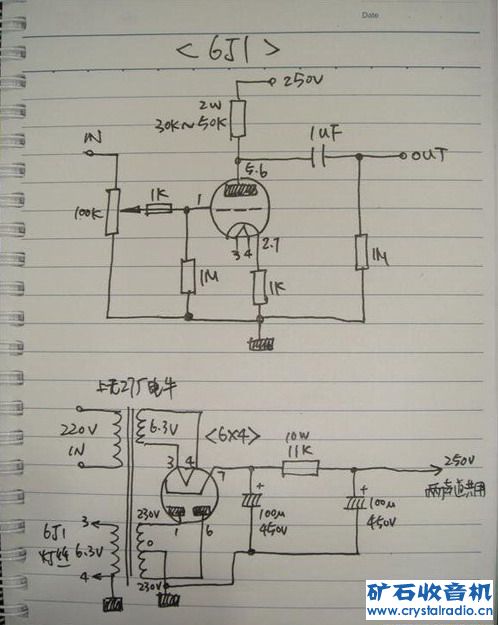 Date
<6J1>
250V
2W
30K~50K
IN
1UF
5.6
OUT
100K
1K
1
3 4
2.7
1M
1K
1M
上无27厂电牛
220V
IN
6.3V
<6X4>
3 4
7
10W
11K
250V
两声道共用
+
100μ
450V
+
100μ
450V
230V
1
6
0
230V
6J1
灯丝
3
6.3V
4
矿石收音机
www.crystalradio.cn